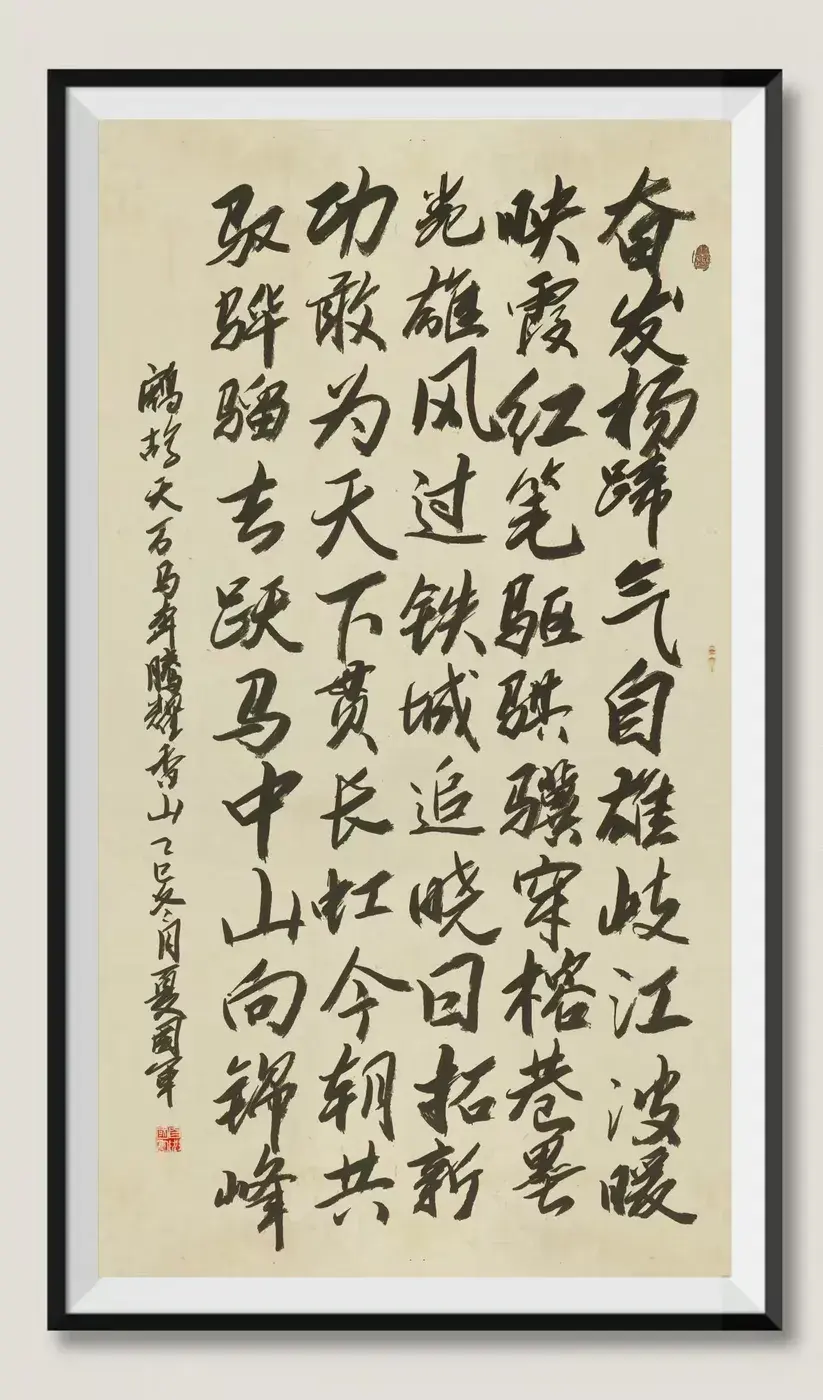 奋发杨蹄气自雄岐江波暖
映霞红笔驱骐骥穿榕巷墨
卷雄风过铁城追晓日拓新
功敢为天下贯长虹今朝共
驭骅骝去跃马中山向锦峰
鹧鸪天万马奔腾耀香山乙巳冬月夏国军